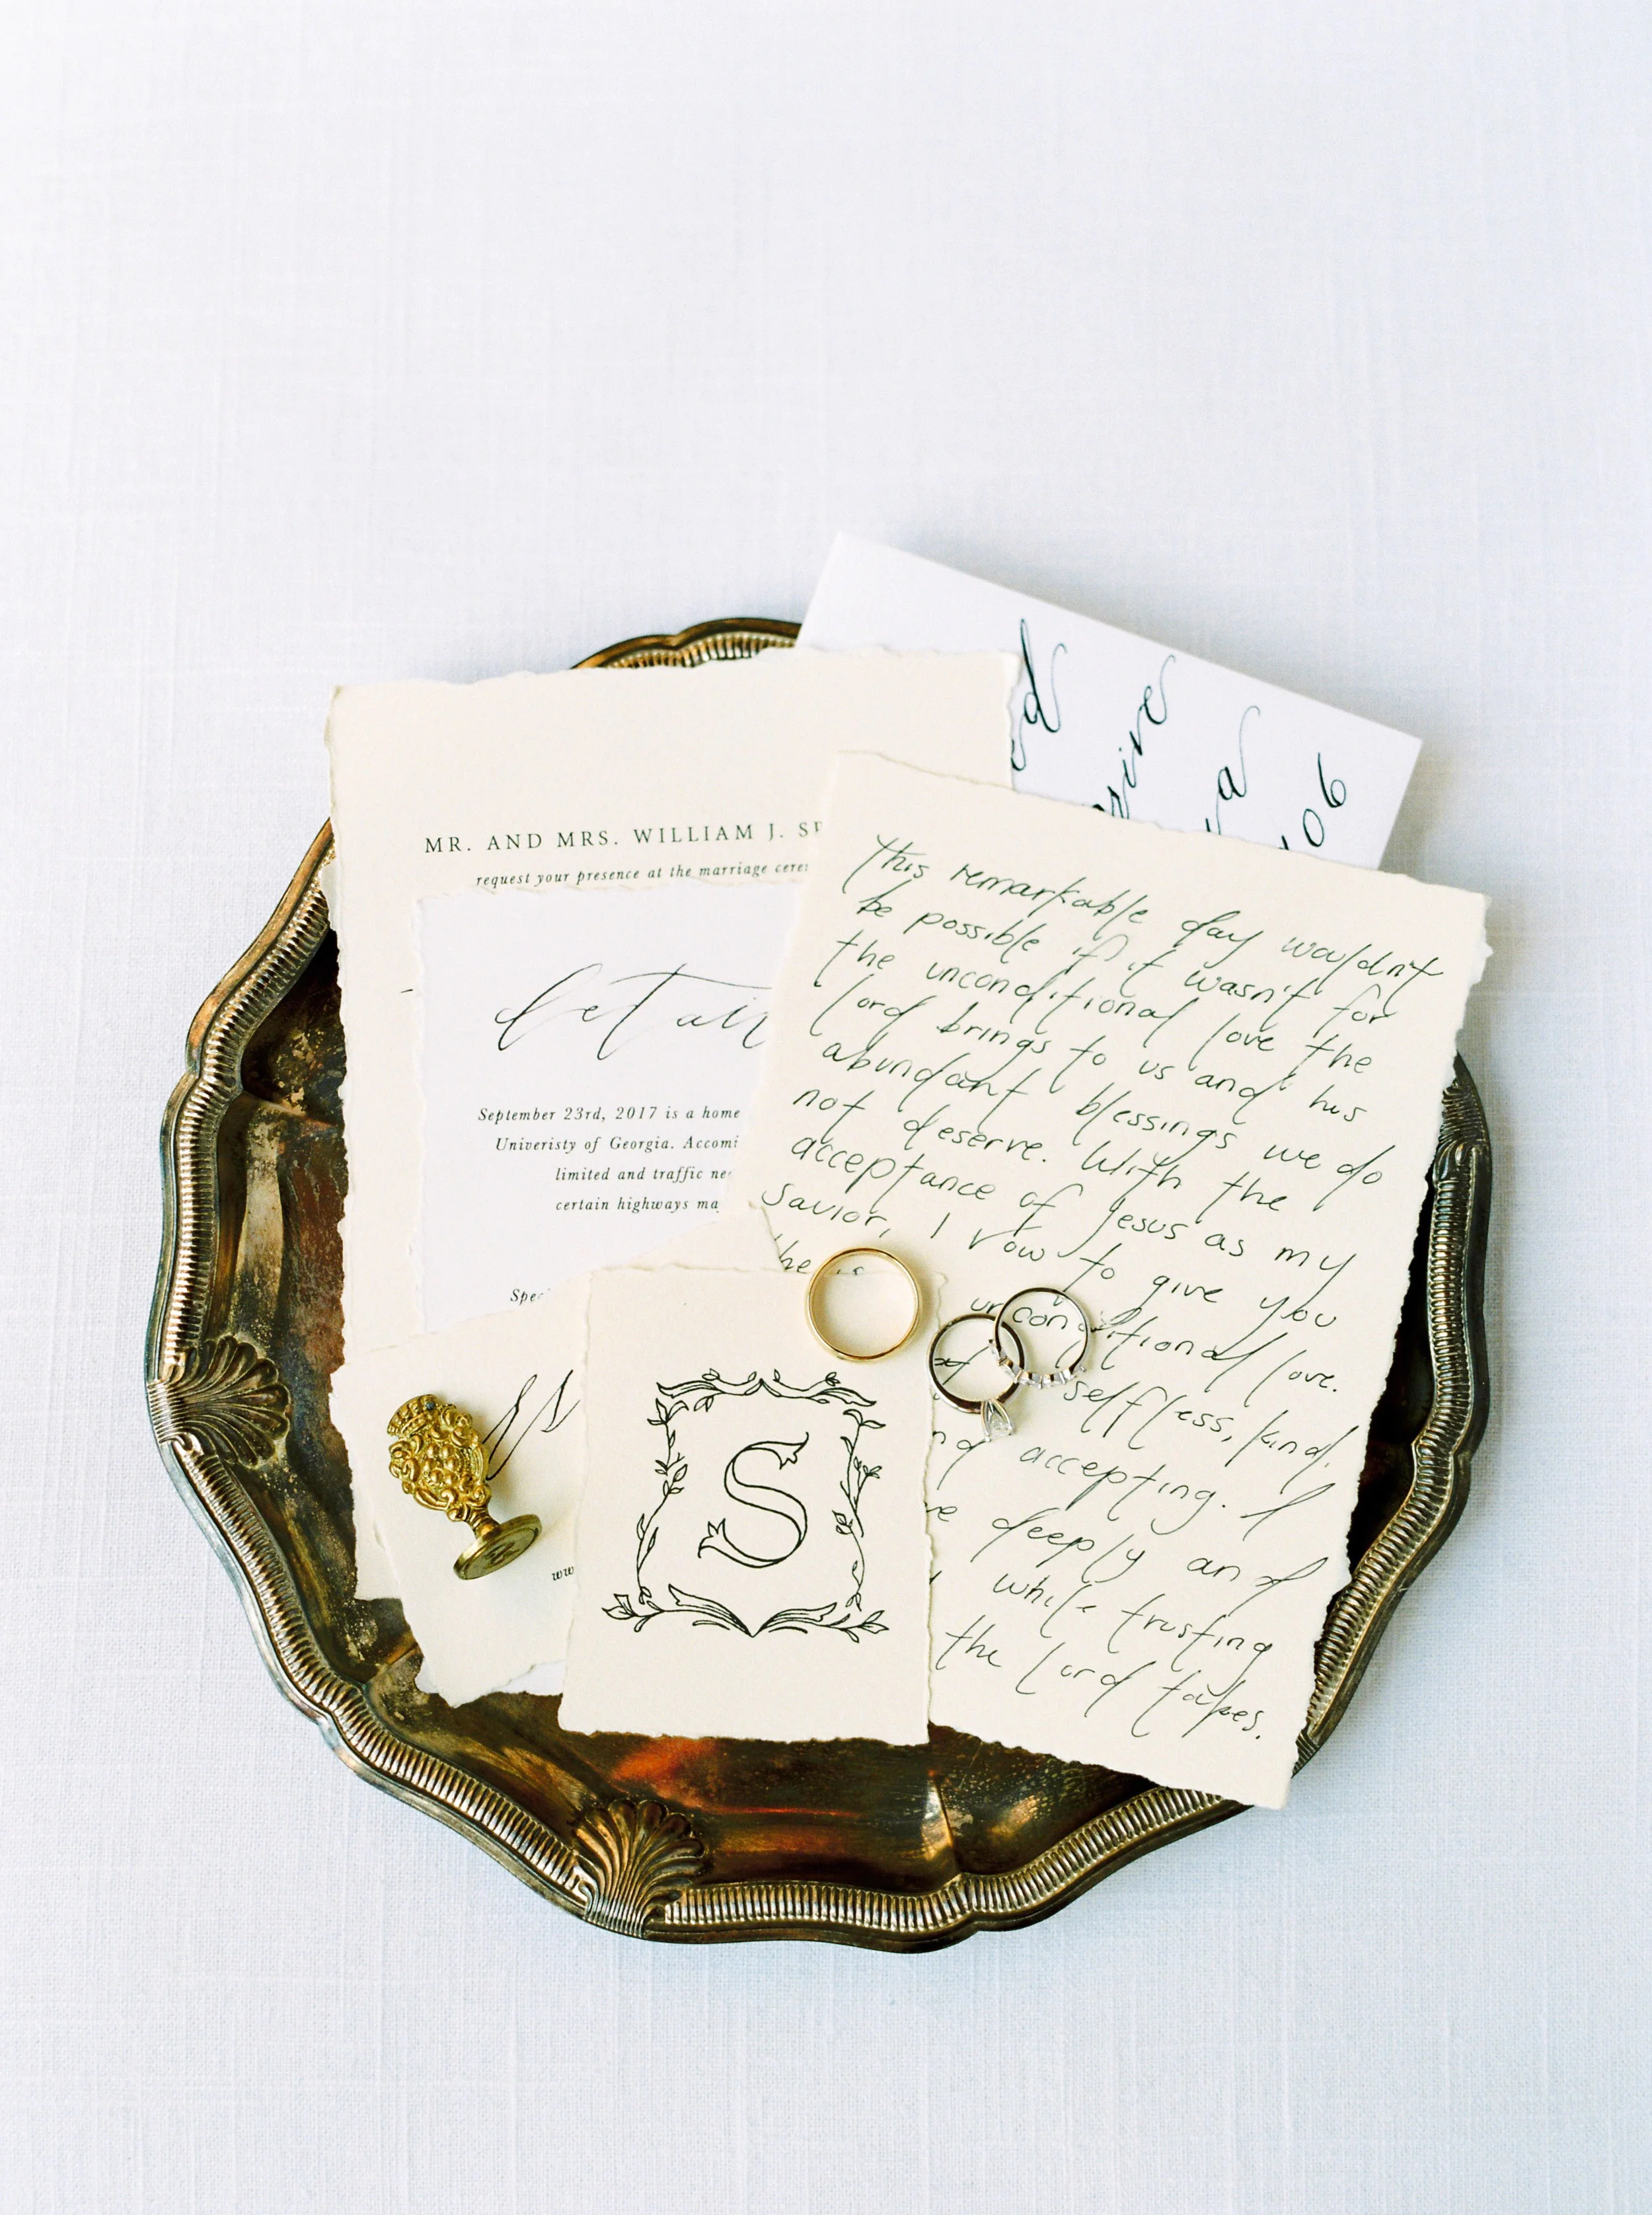 MR. AND MRS. WILLIAM J. SP
request your presence at the marriage cere
details
September 23rd, 2017 is a home
Univeristy of Georgia. Accomi
limited and traffic ne
certain highways ma
Spec
ww
S
ed
rive
a
06
This remarkable day wouldn't
be possible if it wasn't for
the unconditional love the
lord brings to us and his
abundant blessings we do
not deserve. With the
acceptance of Jesus as my
savior, I vow to give you
the unconditional love.
selfless, kind,
nd accepting. I
e deeply and
while trusting
the lord takes.